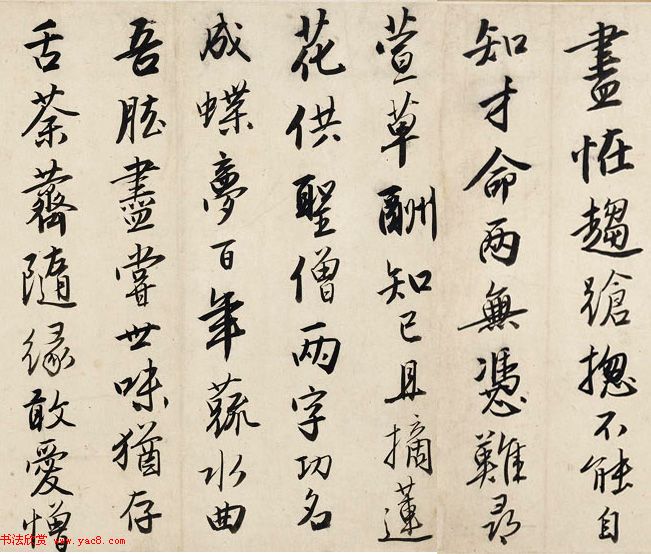 盡恠趨蹌揔不能自
知才命兩無憑難尋
萱草酬知己且摘蓮
花供聖僧兩字功名
成蝶夢百年蔬水曲
吾肱盡嘗世味猶存
舌荼薺隨緣敢愛憎
书法欣赏 www.yac8.com